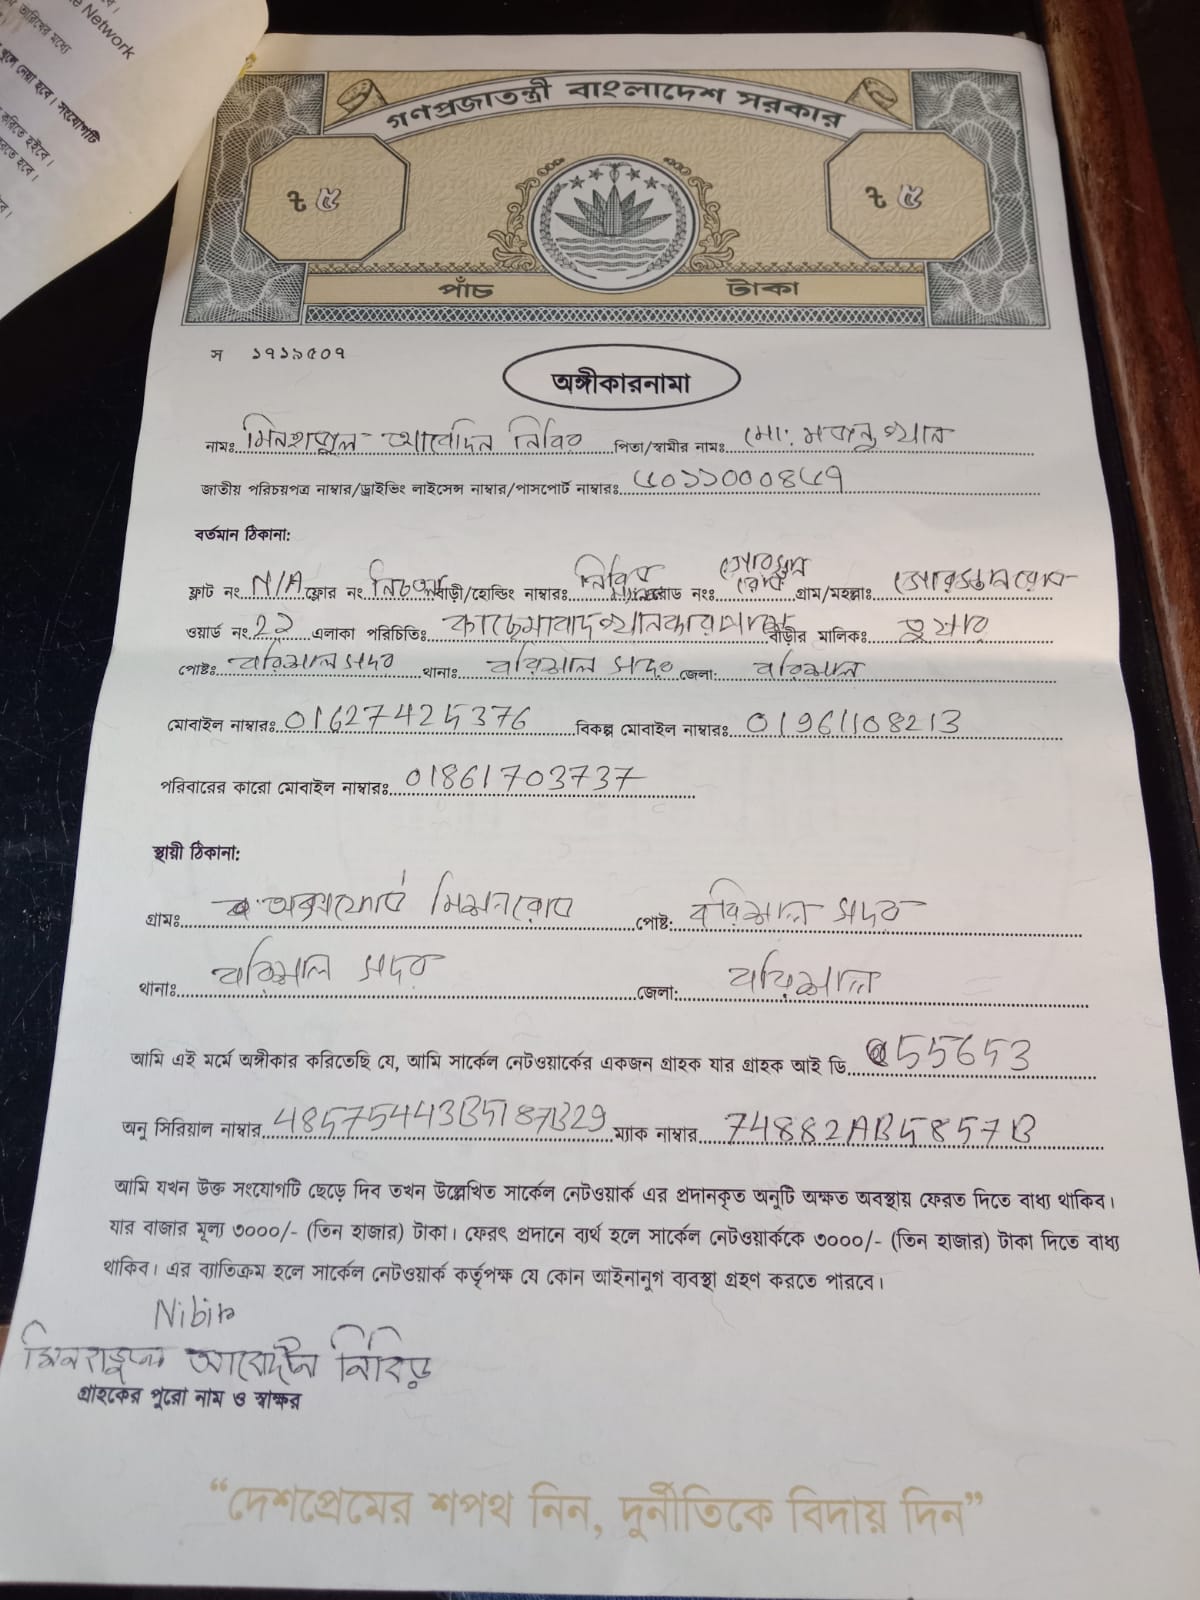 Network
তারিখের মধ্যে
খুলে নেয়া হবে। সংযোগটি
করিতে হইবে।
করতে হবে।
গণপ্রজাতন্ত্রী বাংলাদেশ সরকার
৳ ৫ ৳ ৫
পাঁচ টাকা
স ১৭১৯৫০৭
অঙ্গীকারনামা
নামঃ মিনহাজুল আবেদিন নিবিড় পিতা/স্বামীর নামঃ মো: মজনু খান
জাতীয় পরিচয়পত্র নাম্বার/ড্রাইভিং লাইসেন্স নাম্বার/পাসপোর্ট নাম্বারঃ ৫০১১০০০৪৫৭
বর্তমান ঠিকানা:
ফ্লাট নং N/A ফ্লোর নং নিচতলা বাড়ী/হোল্ডিং নাম্বারঃ নিবিড় রোড নংঃ গোরস্থান রোড গ্রাম/মহল্লাঃ গোরস্তান রোড
ওয়ার্ড নং 22 এলাকা পরিচিতিঃ বাড়ীর মালিকঃ তুষার
পোষ্টঃ বরিশাল সদর থানাঃ বরিশাল সদর জেলা: বরিশাল
মোবাইল নাম্বারঃ 01627425376 বিকল্প মোবাইল নাম্বারঃ 01961108213
পরিবারের কারো মোবাইল নাম্বারঃ 01861703737
স্থায়ী ঠিকানা:
গ্রামঃ অক্সফোর্ড মিশন রোড পোষ্ট: বরিশাল সদর
থানাঃ বরিশাল সদর জেলা: বরিশাল
আমি এই মর্মে অঙ্গীকার করিতেছি যে, আমি সার্কেল নেটওয়ার্কের একজন গ্রাহক যার গ্রাহক আই ডি 55653
অনু সিরিয়াল নাম্বার 48575443B5187B29 ম্যাক নাম্বার 74882AB5857B
আমি যখন উক্ত সংযোগটি ছেড়ে দিব তখন উল্লেখিত সার্কেল নেটওয়ার্ক এর প্রদানকৃত অনুটি অক্ষত অবস্থায় ফেরত দিতে বাধ্য থাকিব।
যার বাজার মূল্য ৩০০০/- (তিন হাজার) টাকা। ফেরৎ প্রদানে ব্যর্থ হলে সার্কেল নেটওয়ার্ককে ৩০০০/- (তিন হাজার) টাকা দিতে বাধ্য
থাকিব। এর ব্যাতিক্রম হলে সার্কেল নেটওয়ার্ক কর্তৃপক্ষ যে কোন আইনানুগ ব্যবস্থা গ্রহণ করতে পারবে।
Nibir
মিনহাজুল আবেদীন নিবিড়
গ্রাহকের পুরো নাম ও স্বাক্ষর
“দেশপ্রেমের শপথ নিন, দুর্নীতিকে বিদায় দিন”